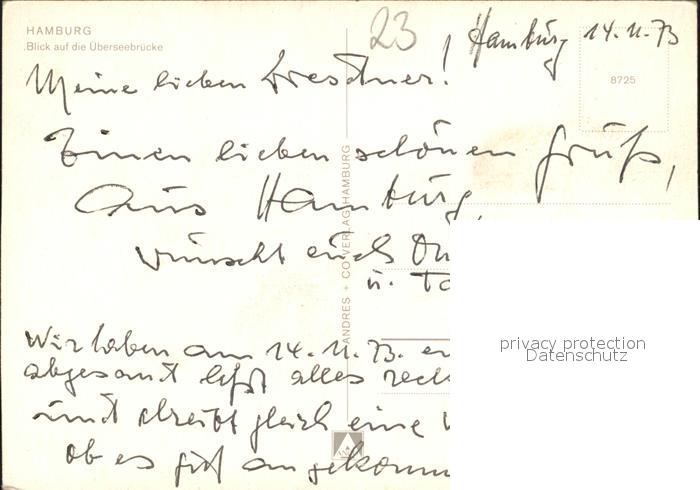 HAMBURG
Blick auf die Überseebrücke
23
Hamburg 14.11.73
8725
Meine lieben Dresdner!
Einen lieben schönen Gruß,
aus Hamburg,
wünscht euch On
u. Ta
ANDRES + CO VERLAG HAMBURG
Wir haben am 14.11.73. en
abgesandt laßt alles rech
und schreibt gleich eine
ob es gut angekomm
privacy protection
Datenschutz